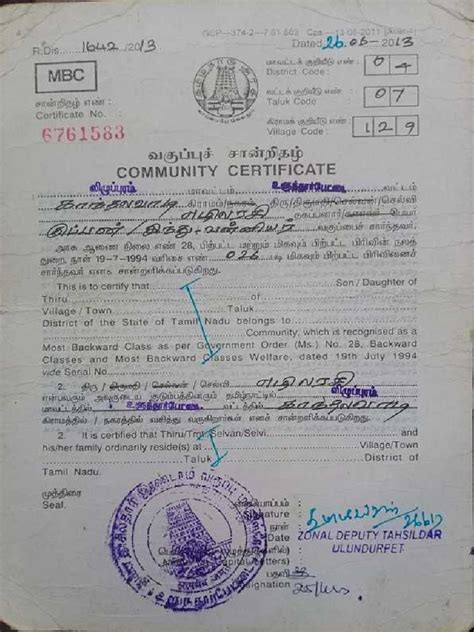 GCP—374-2—7.61.563 Cps—13-06-2011
R.Dis. 1642 /2013
Dated 26.06-2013
MBC
மாவட்டக் குறியீடு எண் :
District Code : 04
சான்றிதழ் எண் :
Certificate No. :
வட்டக் குறியீடு எண் :
Taluk Code : 07
6761583
கிராமக் குறியீடு எண் :
Village Code : 129
வகுப்புச் சான்றிதழ்
COMMUNITY CERTIFICATE
விழுப்புரம் மாவட்டம் உளுந்தூர்பேட்டை வட்டம்
கிராமம்/நகரம் திரு/திருமதி/செல்வன்/செல்வி
எழிலரசி தகப்பனார்/கணவர் பெயர்
குப்பன் / இந்து-வன்னியர் வகுப்பைச் சார்ந்தவர்.
அரசு ஆணை நிலை எண் 28, பிற்பட்ட மற்றும் மிகவும் பிற்பட்ட பிரிவின் நலத்
துறை, நாள் 19-7-1994 வரிசை எண் 026 படி மிகவும் பிற்பட்ட பிரிவினைச்
சார்ந்தவர் எனச் சான்றளிக்கப்படுகிறது.
This is to certify that Son / Daughter of
Thiru of
Village / Town Taluk
District of the State of Tamil Nadu belongs to
Community, which is recognised as a
Most Backward Class as per Government Order (Ms.) No. 28, Backward
Classes and Most Backward Classes Welfare, dated 19th July 1994
vide Serial No.
2. திரு / திருமதி / செல்வன் / செல்வி எழிலரசி
என்பவரும் அவருடைய குடும்பத்தினரும் தமிழ்நாட்டில் விழுப்புரம்
மாவட்டத்தில் உளுந்தூர்பேட்டை வட்டத்தில்
கிராமத்தில் / நகரத்தில் வசித்து வருகிறார்கள் எனச் சான்றளிக்கப்படுகிறது.
2. It is certified that Thiru/Tmt./Selvan/Selvi. and
his/her family ordinarily reside(s) at Village/Town
Taluk District of
Tamil Nadu.
முத்திரை
Seal.
கையொப்பம்
Signature
நாள்
ZONAL DEPUTY TAHSILDAR
ULUNDURPET
பதவி